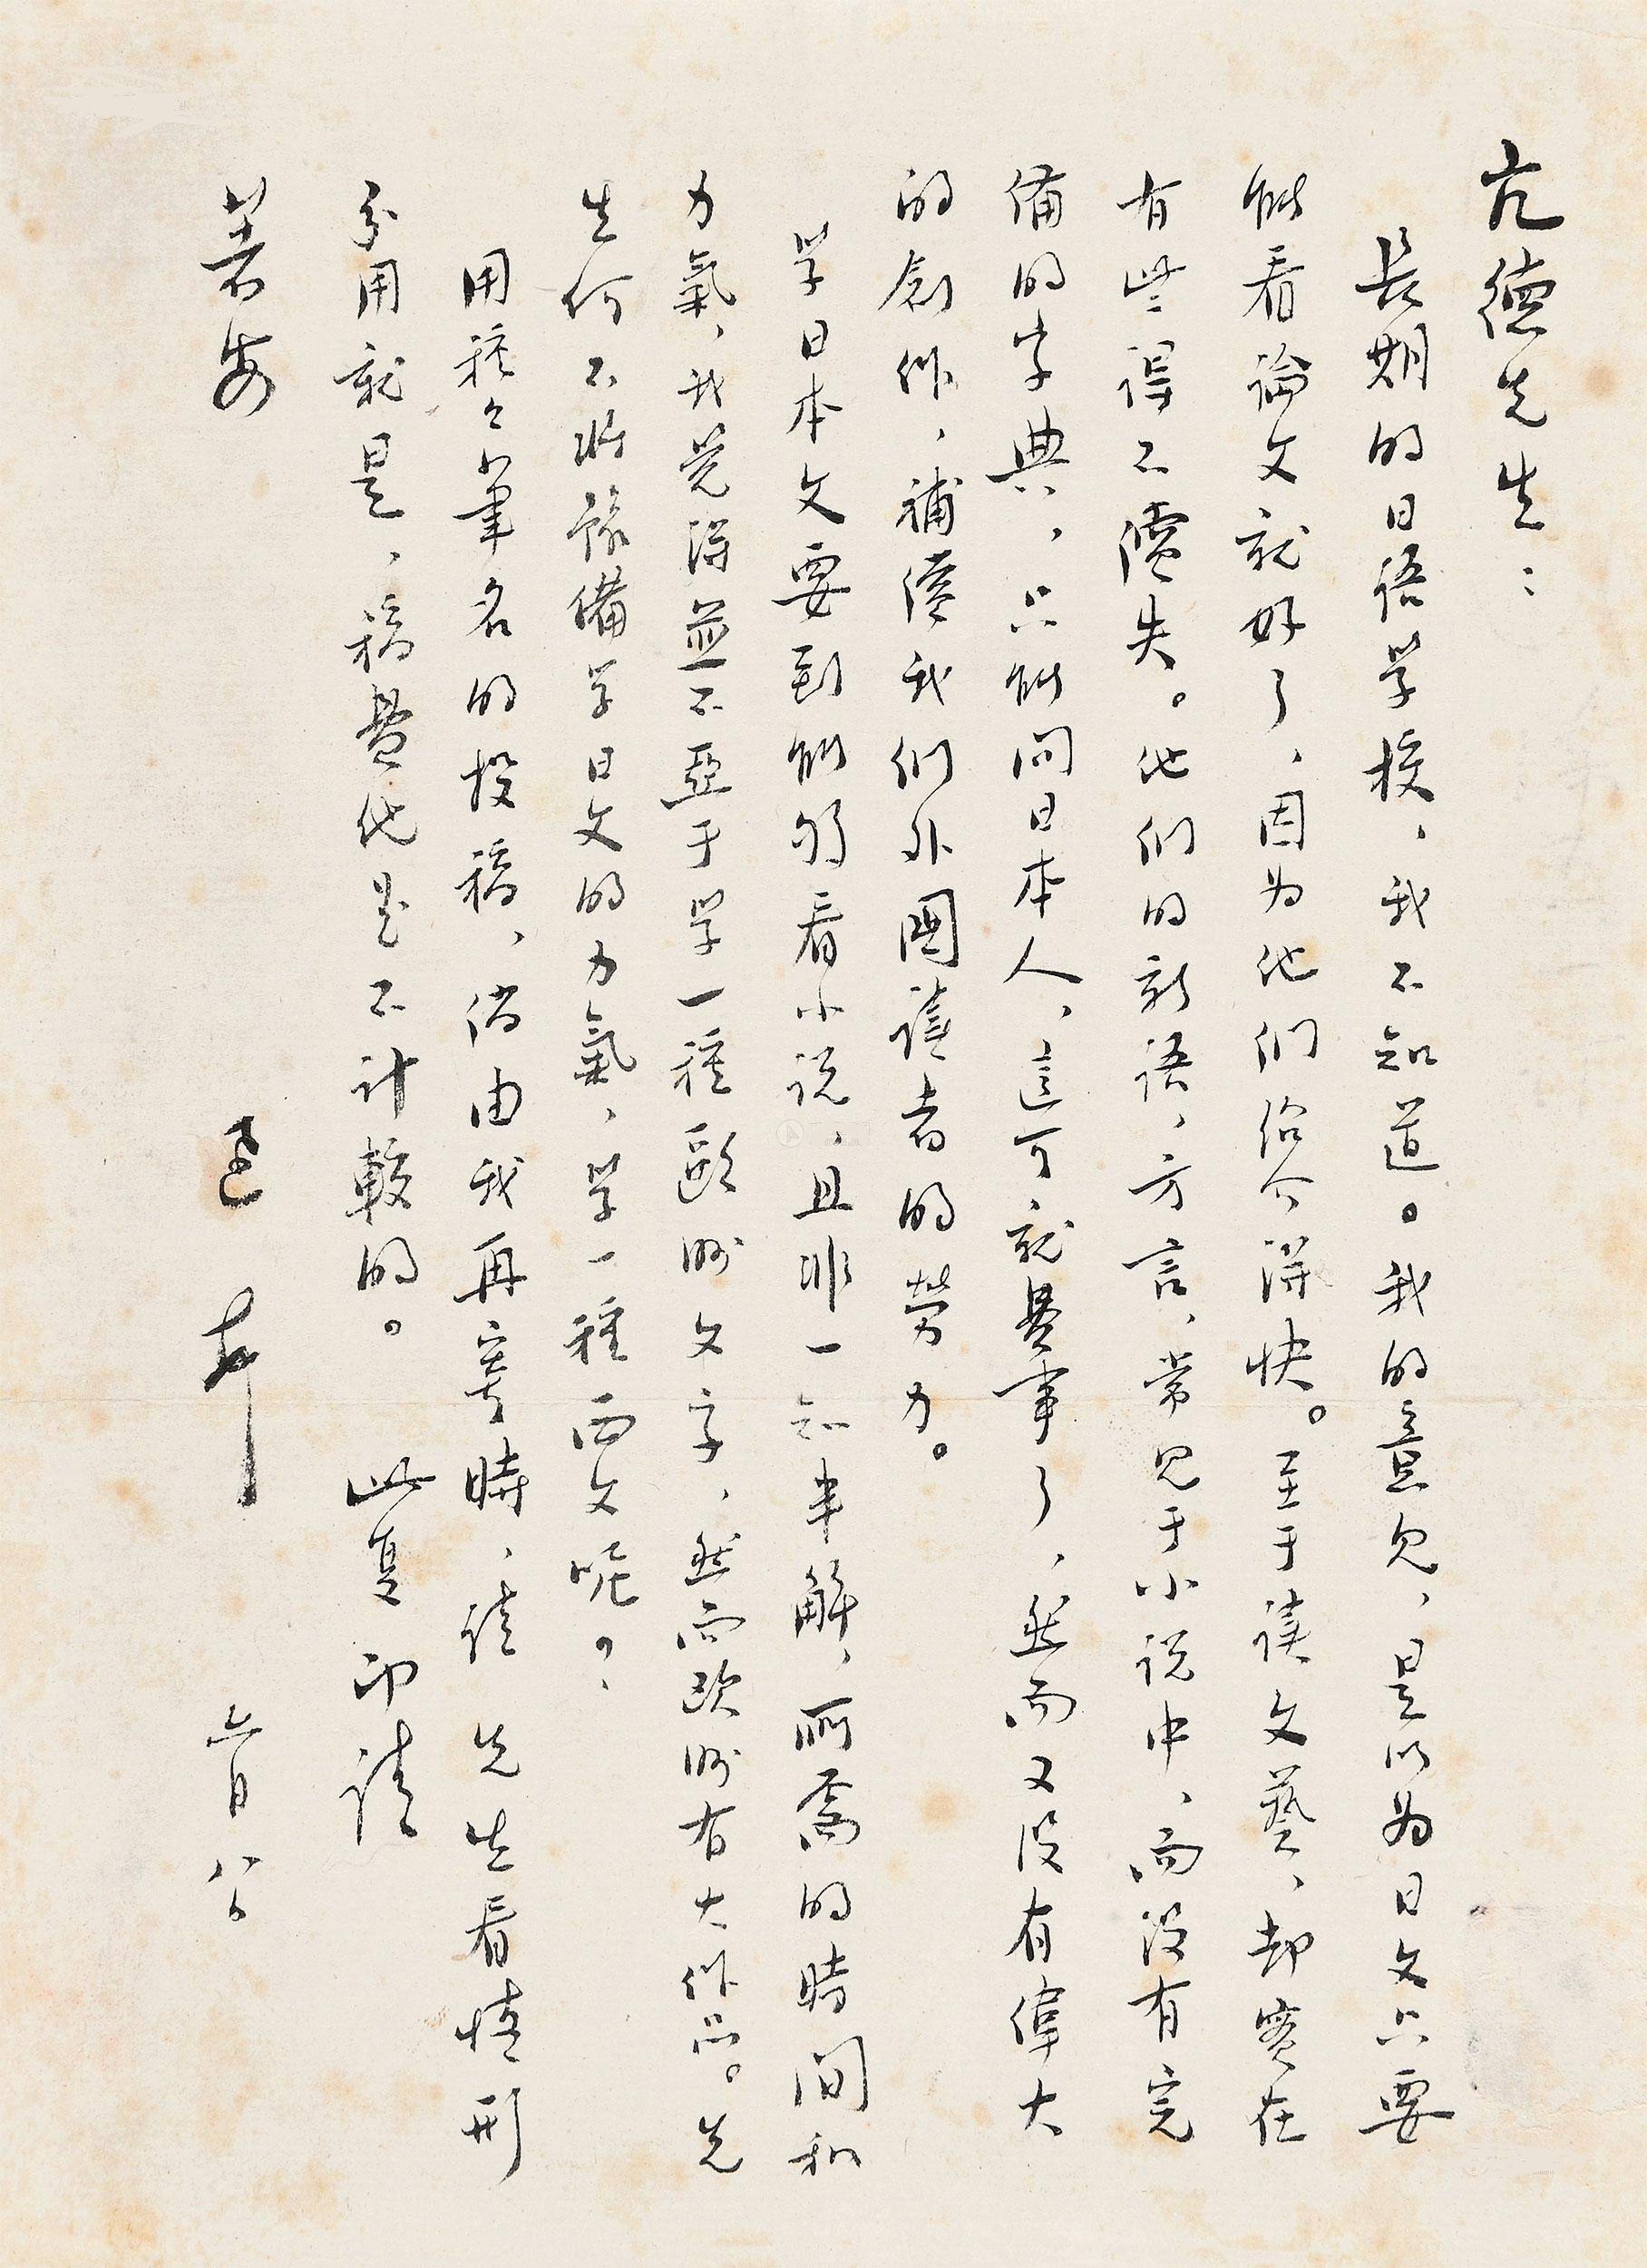 亢德先生：
長期的日语学校，我不知道。我的意見，是以为日文只要
能看論文就好了，因为他们绍介得快。至于读文藝，却實在
有些得不償失。他们的新語，方言，常见于小说中，而没有完
備的字典，只能问日本人，這可就费事了，然而又没有偉大
的創作，補償我们外國读者的勞力。
学日本文要到能够看小说，且非一知半解，所需的時间和
力氣，我觉得並不亞于学一種歐洲文字，然而欧洲有大作品。先
生何不将豫備学日文的力氣，学一種西文呢？
用種々筆名的投稿，倘由我再寄時，请 先生看情形
分用就是，稿費他是不计較的。 此复 即请
著安
迅 頓 六月八日